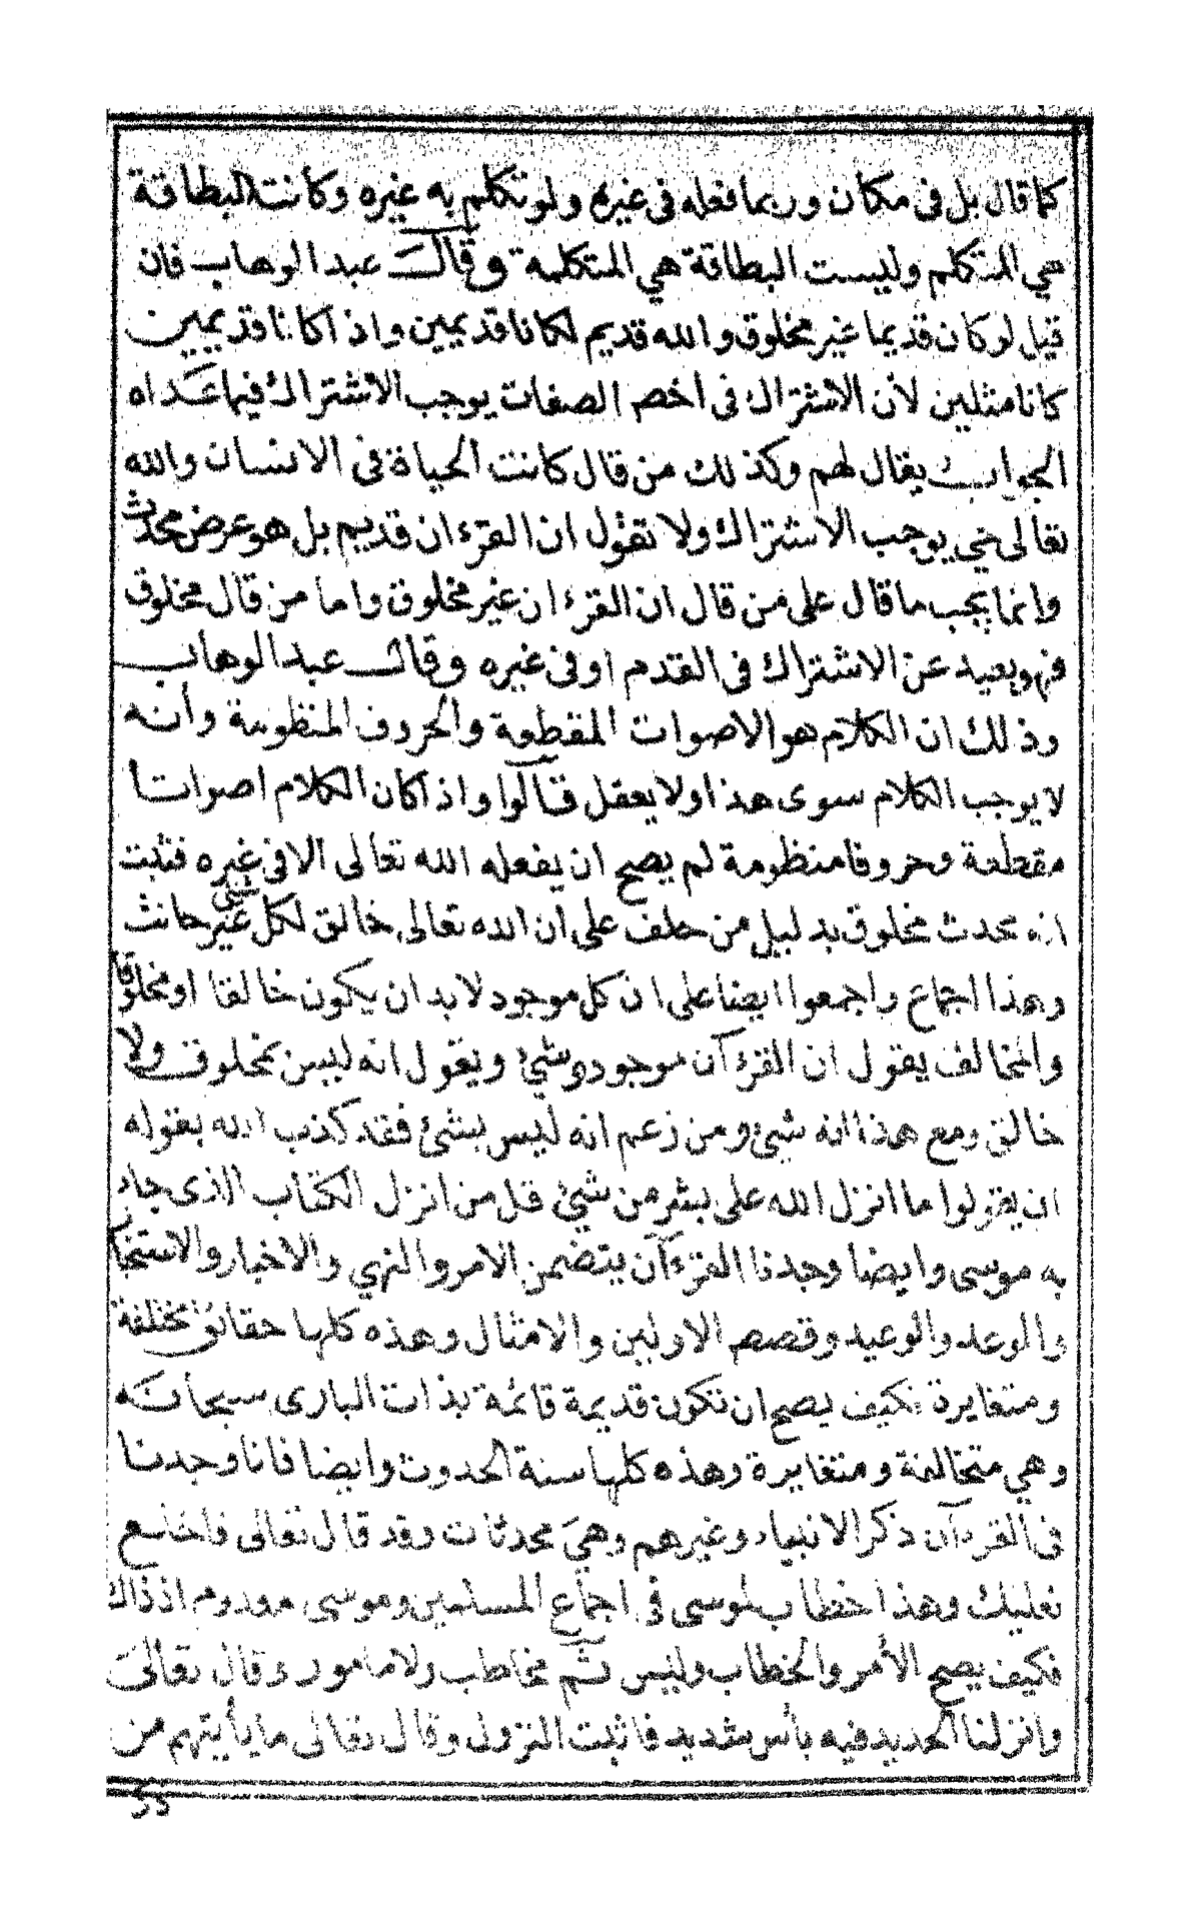 كما قال بل في مكان وربما فعله في غيره ولو تكلم به غيره وكانت البطاقة
هي المتكلم وليست البطاقة هي المتكلمة وقال عبد الوهاب فان
قيل لو كان قديما غير مخلوق والله قديم لكانا قديمين واذا كانا قديمين
كانا مثلين لأن الاشتراك في أخص الصفات يوجب الاشتراك فيما عداه
الجواب يقال لهم وكذلك من قال كانت الحياة في الانسان والله
تعالى حي يوجب الاشتراك ولا تقول ان القرءان قديم بل هو عرض محدث
وانما يجب ما قال على من قال ان القرءان غير مخلوق واما من قال مخلوق
فهو بعيد عن الاشتراك في القدم او في غيره وقال عبد الوهاب
وذلك ان الكلام هو الاصوات المقطعة والحروف المنظومة وأنه
لا يوجب الكلام سوى هذا ولا يعقل قالوا واذا كان الكلام اصواتا
مقطعة وحروفا منظومة لم يصح ان يفعله الله تعالى الا في غيره فثبت
انه محدث مخلوق بدليل من حلف على أن الله تعالى خالق لكل شئ غير حانث
وهذا اجماع واجمعوا ايضا على ان كل موجود لا بد ان يكون خالقا او مخلوقا
والمخالف يقول ان القرءآن موجود وشئ ويقول انه ليس بمخلوق ولا
خالق ومع هذا انه شئ ومن زعم انه ليس بشئ فقد كذب الله بقوله
ان يقولوا ما انزل الله على بشر من شئ قل من انزل الكتاب الذى جاء
به موسى وايضا وجدنا القرءآن يتضمن الامر والنهي والاخبار والاستخبار
والوعد والوعيد وقصص الاولين والامثال وهذه كلها حقائق مختلفة
ومتغايرة فكيف يصح ان تكون قديمة قائمة بذات البارى سبحانه
وهي متخالفة ومتغايرة وهذه كلها سنة الحدوث وايضا فانا وجدنا
في القرءآن ذكر الانبياء وغيرهم وهي محدثات وقد قال تعالى فاخلع
نعليك وهذا خطاب لموسى في اجماع المسلمين وموسى معدوم اذ ذاك
فكيف يصح الأمر والخطاب وليس ثم مخاطب ولا مأمور وقال تعالى
وانزلنا الحديد فيه بأس شديد فاثبت النزول وقال تعالى ما يأتيهم من